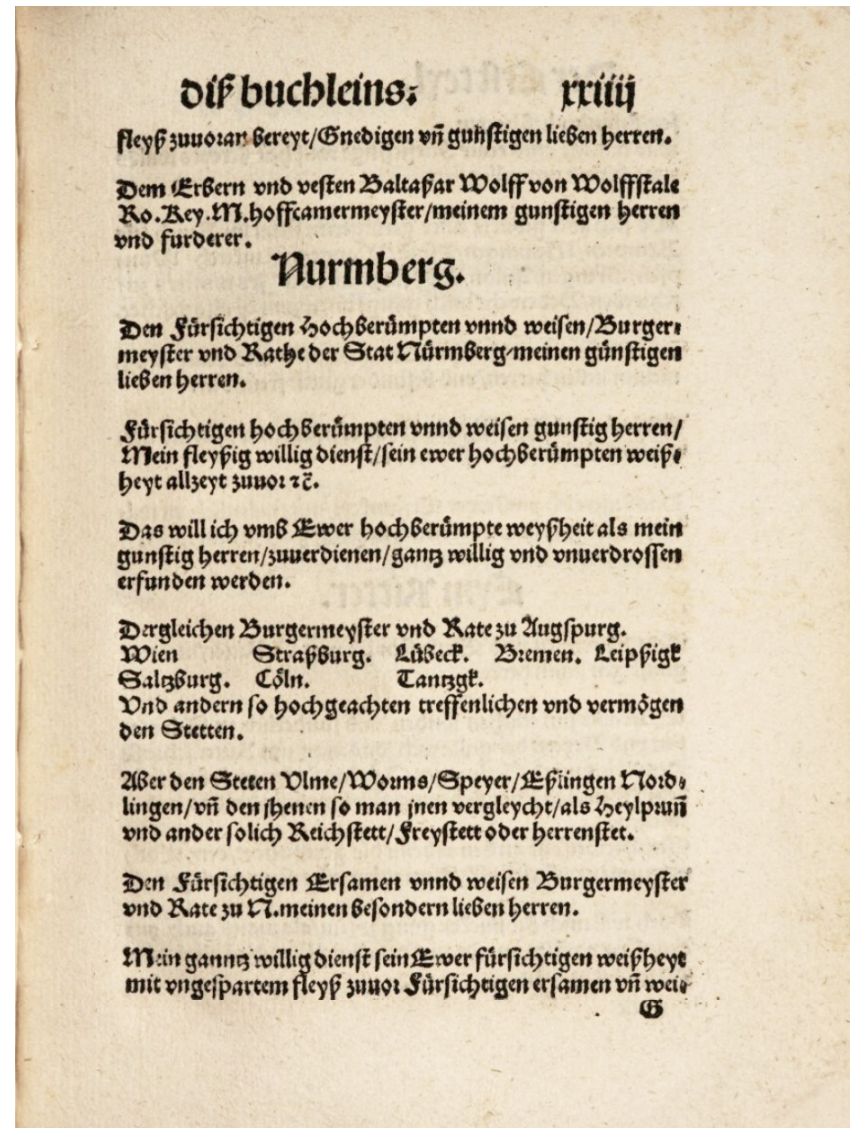 diß buchleins. xxiiij
fleyß zuuoran bereyt/Gnedigen vñ gunstigen lieben herren.
Dem Erbern vnd vesten Baltaßar Wolff von Wolffstale
Ro.Key.M.hoffcamermeyster/meinem gunstigen herren
vnd furderer.
Nurmberg.
Den Fürsichtigen Hochberümpten vnnd weisen/Burger⸗
meyster vnd Rathe der Stat Nürmberg/meinen günstigen
lieben herren.
Fürsichtigen hochberümpten vnnd weisen gunstig herren/
Mein fleyßig willig dienst/sein ewer hochberümpten weiß⸗
heyt allzeyt zuuor ⁊c̄.
Das will ich vmb Ewer hochberümpte weyßheit als mein
gunstig herren/zuuerdienen/gantz willig vnd vnuerdrossen
erfunden werden.
Dergleichen Burgermeyster vnd Rate zu Augspurg.
Wien Straßburg. Lübeck. Bremen. Leipßigk
Saltzburg. Cöln. Tantzgk.
Vnd andern so hochgeachten treffenlichen vnd vermögen
den Stetten.
Aber den Steten Vlme/Worms/Speyer/Eßlingen Nord⸗
lingen/vñ den jhenen so man jnen vergleycht/als Heylprunñ
vnd ander solich Reichstett/Freystett oder herrenstet.
Den Fürsichtigen Ersamen vnnd weisen Burgermeyster
vnd Rate zu N.meinen besondern lieben herren.
Mein ganntz willig dienst sein Ewer fürsichtigen weißheyt
mit vngespartem fleyß zuuor Fürsichtigen ersamen vñ wei⸗
G